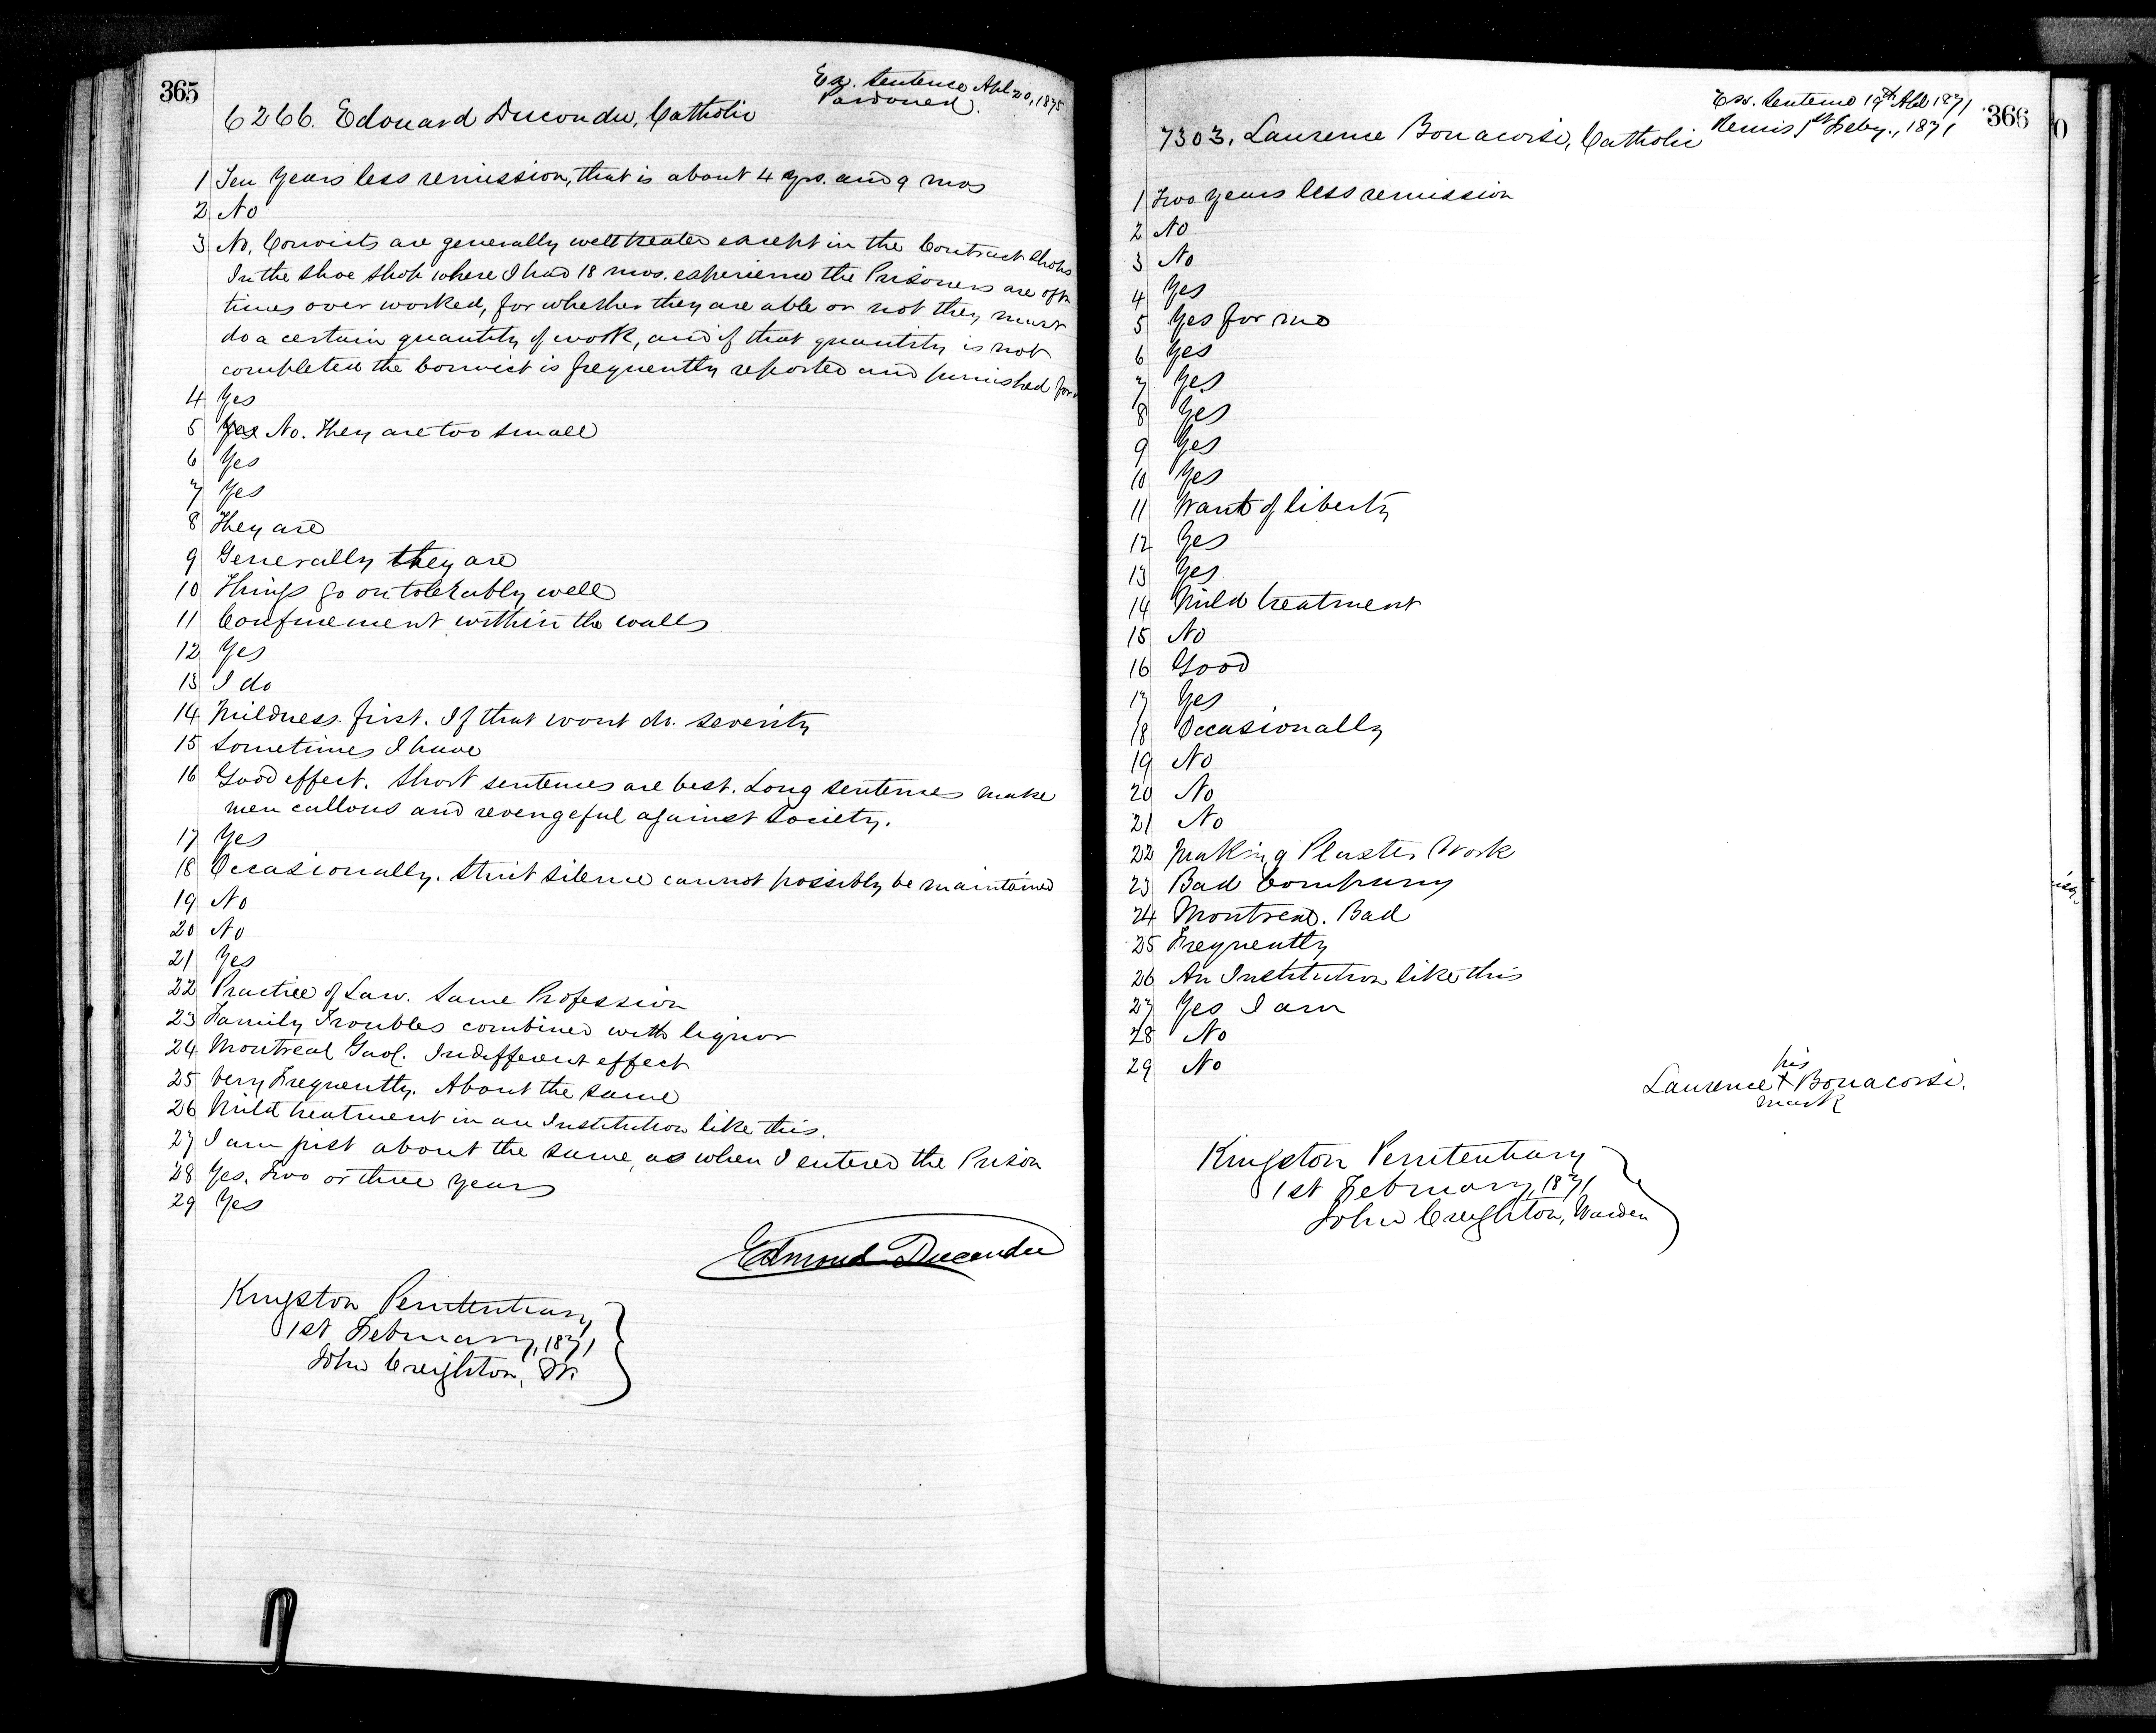 365
Ex. Sentence Apl 20, 1875
Pardoned.
6266. Edouard Ducondu, Catholic
1 Ten Years less remission, that is about 4 yrs. and 9 mos
2 No
3 No, Convicts are generally well treated except in the Contract Shops
In the Shoe Shop where I had 18 mos. experience the Prisoners are oft
times over worked, for whether they are able or not they must
do a certain quantity of work, and if that quantity is not
completed the Convict is frequently reported and punished for
4 Yes
5 Yes No. They are too small
6 Yes
7 Yes
8 They are
9 Generally they are
10 Things go on tolerably well
11 Confinement within the walls
12 Yes
13 I do
14 Mildness first. If that wont do. severity
15 Sometimes I have
16 Good effect. Short sentences are best. Long sentences make
men callous and revengeful against Society.
17 Yes
18 Occasionally. Strict silence cannot possibly be maintained
19 No
20 No
21 Yes
22 Practice of Law. Same Profession
23 Family Troubles combined with liquor
24 Montreal Gaol. Indifferent effect
25 Very Frequently. About the same
26 Mild treatment in an Institution like this.
27 I am just about the same, as when I entered the Prison
28 Yes. Two or three years
29 Yes
Edmond Ducondu
Kingston Penitentiary
1st February, 1871
John Creighton, W.
366
Ex. Sentence 19th Apl 1871
Remis 1st Feby., 1871
7303. Laurence Bonacorsi, Catholic
1 Two years less remission
2 No
3 No
4 Yes
5 Yes for me
6 Yes
7 Yes
8 Yes
9 Yes
10 Yes
11 Want of liberty
12 Yes
13 Yes
14 Mild treatment
15 No
16 Good
17 Yes
18 Occasionally
19 No
20 No
21 No
22 Making Plaster Work
23 Bad Company
24 Montreal. Bad
25 Frequently
26 An Institution like this
27 Yes I am
28 No
29 No
his
Laurence + Bonacorsi.
mark
Kingston Penitentiary
1st February, 1871
John Creighton, Warden
0